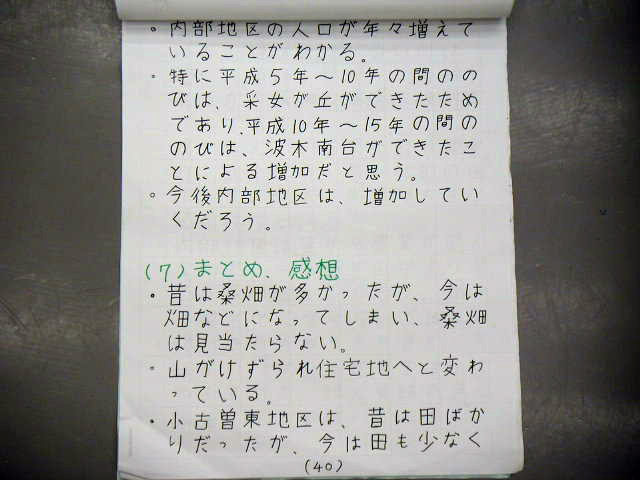 ・内部地区の人口が年々増えて
いることがわかる。
・特に平成5年～10年の間のの
びは、采女が丘ができたため
であり、平成10年～15年の間の
のびは、波木南台ができたこ
とによる増加だと思う。
・今後内部地区は、増加してい
くだろう。
(7)まとめ、感想
・昔は桑畑が多かったが、今は
畑などになってしまい、桑畑
は見当たらない。
・山がけずられ住宅地へと変わ
っている。
・小古曽東地区は、昔は田ばか
りだったが、今は田も少なく
(40)